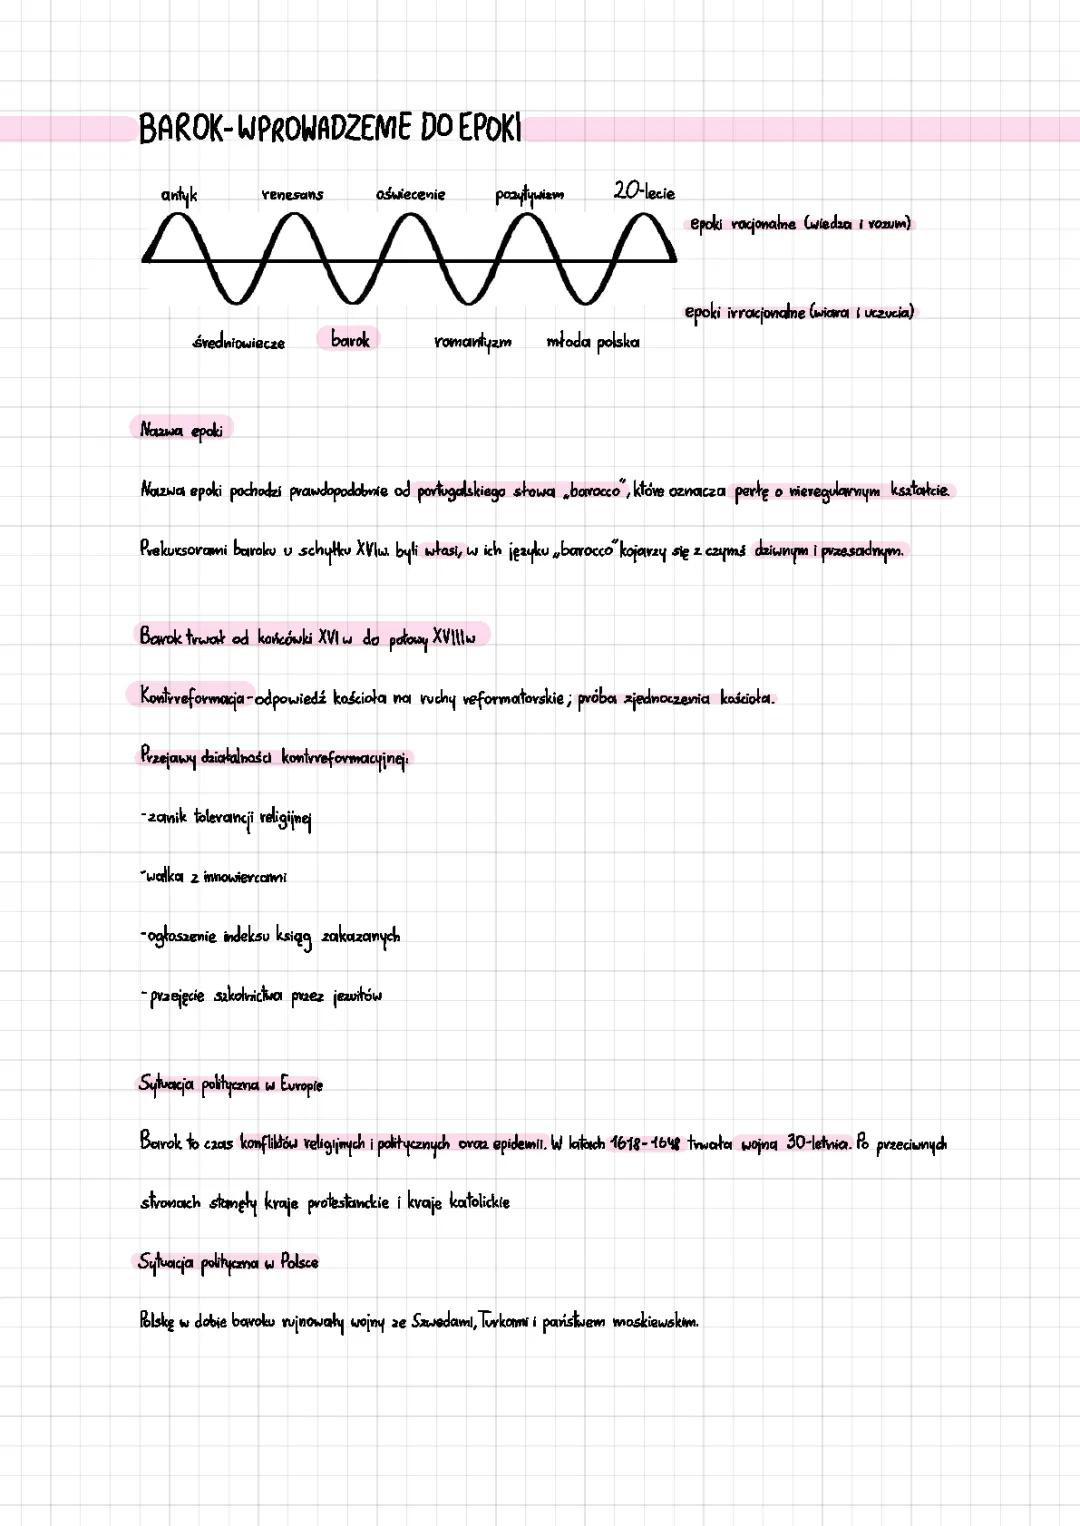 BAROK-WPROWADZENIE DO EPOKI
antyk renesans oświecenie pozytywizm 20-lecie
epoki racjonalne (wiedza i rozum)
epoki irracjonalne (wiara i uczucia)
średniowiecze barok romantyzm młoda polska
Nazwa epoki
Nazwa epoki pochodzi prawdopodobnie od portugalskiego słowa „barocco", które oznacza perłę o nieregularnym kształcie.
Prekursorami baroku u schyłku XVIw. byli włosi, w ich języku „barocco" kojarzy się z czymś dziwnym i przesadnym.
Barok trwał od końcówki XVI w do połowy XVIII w
Kontrreformacja-odpowiedź kościoła na ruchy reformatorskie; próba zjednoczenia kościoła.
Przejawy działalności kontrreformacyjnej:
-zanik tolerancji religijnej
-walka z innowiercami
-ogłoszenie indeksu ksiąg zakazanych
-przejęcie szkolnictwa przez jezuitów
Sytuacja polityczna w Europie
Barok to czas konfliktów religijnych i politycznych oraz epidemii. W latach 1618-1648 trwała wojna 30-letnia. Po przeciwnych
stronach stanęły kraje protestanckie i kraje katolickie
Sytuacja polityczna w Polsce
Polskę w dobie baroku rujnowały wojny ze Szwedami, Turkami i państwem moskiewskim.